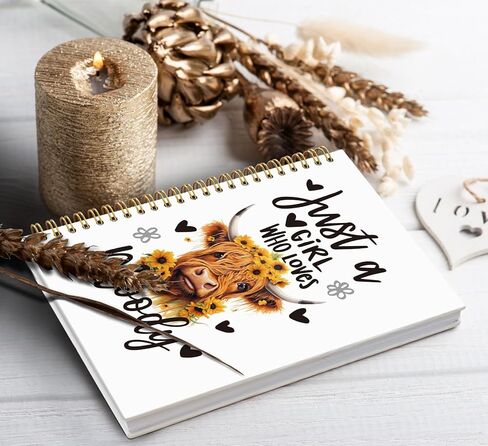 Just a
GIRL
WHO LOVES
LOV